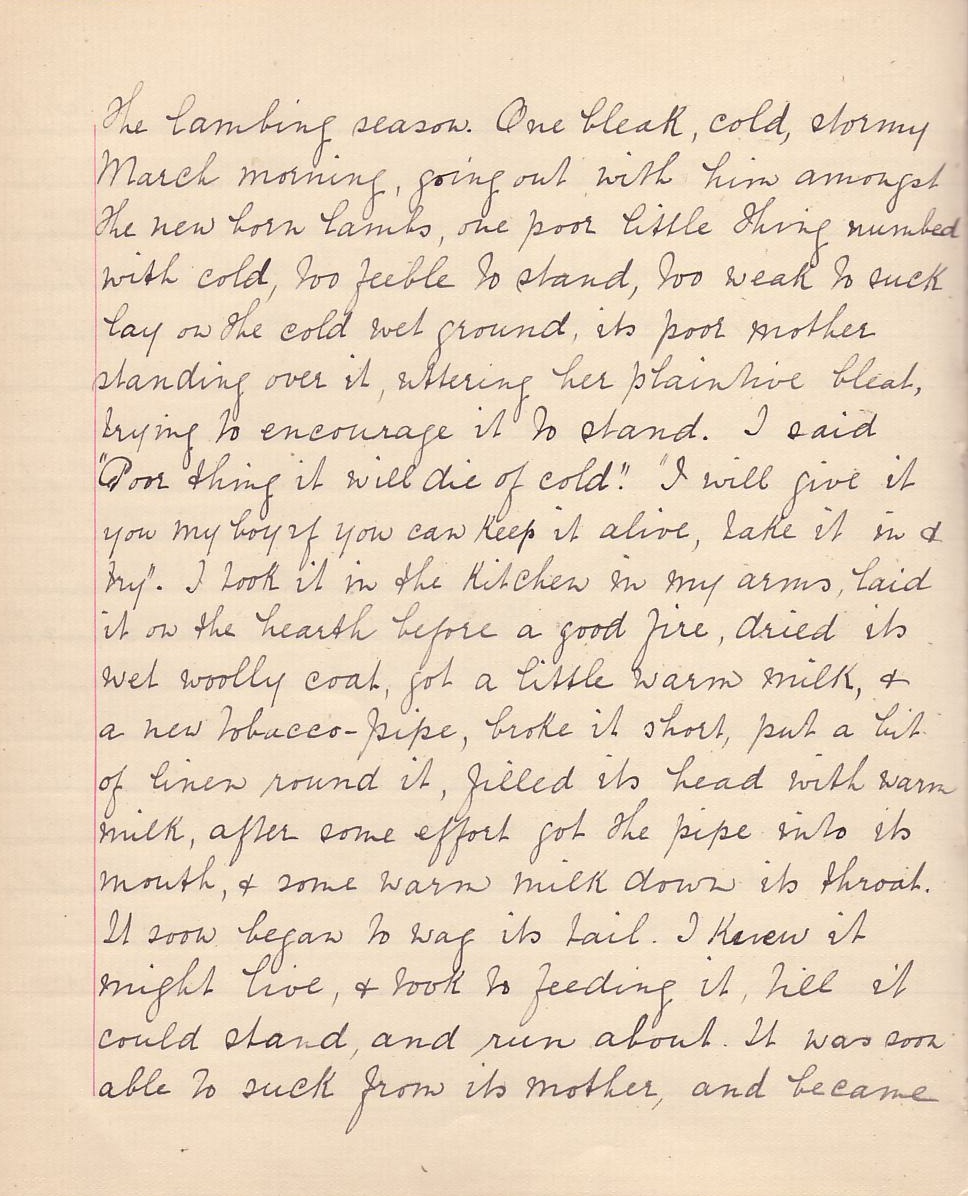 the lambing season. One bleak, cold, stormy
March morning, going out with him amongst
the new born lambs, one poor little thing numbed
with cold, too feeble to stand, too weak to suck
lay on the cold wet ground, its poor mother
standing over it, uttering her plaintive bleat,
trying to encourage it to stand. I said
"Poor thing it will die of cold". "I will give it
you my boy if you can keep it alive, take it in &
try". I took it in the kitchen in my arms, laid
it on the hearth before a good fire, dried its
wet woolly coat, got a little warm milk, &
a new tobacco-pipe, broke it short, put a bit
of linen round it, filled its head with warm
milk, after some effort got the pipe into its
mouth, & some warm milk down its throat.
It soon began to wag its tail. I knew it
might live, & took to feeding it, till it
could stand, and run about. It was soon
able to suck from its mother, and became